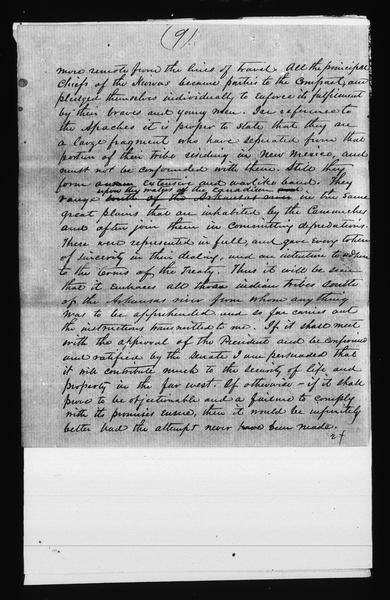 (9)
more remote from the lines of travel. All the principal
Chiefs of the Kiowas became parties to the Compact, and
pledged themselves individually to enforce its fulfilment
by their braves and young men. In reference to
the Apaches it is proper to state that they are
a large fragment who have seperated from that
portion of their tribe residing in New Mexico, and
must not be confounded with them. Still they
form extensive and warlike band. They
upon the waters of the Canadian
range south of the Arkansas in the same
great plains that are inhabited by the Camanches
and often join them in committing depredations.
These were represented in full, and gave every token
of sincerity in their dealing, and an intention to adhere
to the terms of the Treaty. Thus it will be seen
that it embraces all those indian tribes South
of the Arkansas river from whom anything
was to be apprehended and so far carries out
the instructions transmitted to me. If it shall meet
with the approval of the President and be confirmed
and ratified by the Senate I am persuaded that
it will contribute much to the security of life and
property in the far west. If otherwise - if it shall
prove to be objectionable and a failure to comply
with its promises ensue, then it would be infinitely
better had the attempt never have been made.